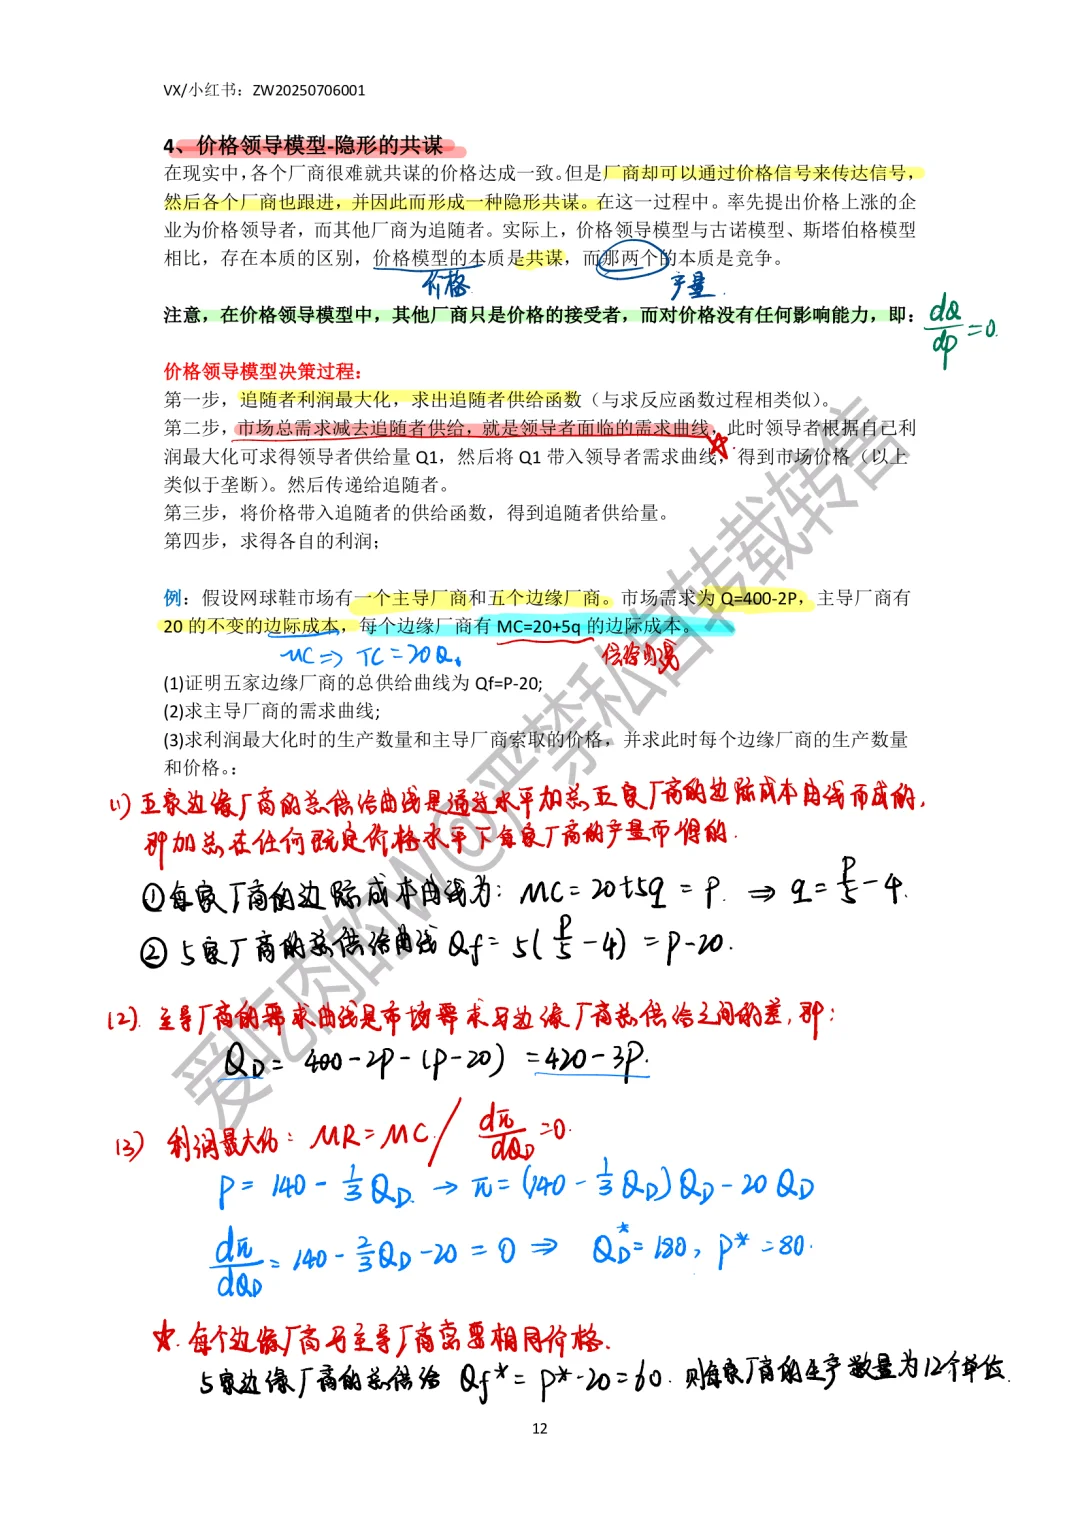 VX/小红书：ZW20250706001
4、价格领导模型-隐形的共谋
在现实中，各个厂商很难就共谋的价格达成一致。但是厂商却可以通过价格信号来传达信号，
然后各个厂商也跟进，并因此而形成一种隐形共谋。在这一过程中。率先提出价格上涨的企
业为价格领导者，而其他厂商为追随者。实际上，价格领导模型与古诺模型、斯塔伯格模型
相比，存在本质的区别，价格模型的本质是共谋，而那两个的本质是竞争。
价格 产量
注意，在价格领导模型中，其他厂商只是价格的接受者，而对价格没有任何影响能力，即： dQ/dp=0.
价格领导模型决策过程：
第一步，追随者利润最大化，求出追随者供给函数（与求反应函数过程相类似）。
第二步，市场总需求减去追随者供给，就是领导者面临的需求曲线，此时领导者根据自己利
润最大化可求得领导者供给量 Q1，然后将 Q1 带入领导者需求曲线，得到市场价格（以上
类似于垄断）。然后传递给追随者。
第三步，将价格带入追随者的供给函数，得到追随者供给量。
第四步，求得各自的利润；
例：假设网球鞋市场有一个主导厂商和五个边缘厂商。市场需求为 Q=400-2P，主导厂商有
20 的不变的边际成本，每个边缘厂商有 MC=20+5q 的边际成本。
MC⇒ TC=20Q. 供给曲线
(1)证明五家边缘厂商的总供给曲线为 Qf=P-20;
(2)求主导厂商的需求曲线;
(3)求利润最大化时的生产数量和主导厂商索取的价格，并求此时每个边缘厂商的生产数量
和价格。:
(1) 五家边缘厂商的总供给曲线是通过水平加总五家厂商的边际成本曲线而成的,
即加总在任何既定价格水平下每家厂商的产量而得的.
①每家厂商的边际成本曲线为: MC=20+5q=P. ⇒ q=P/5-4.
② 5家厂商的总供给曲线 Qf=5(P/5-4)=P-20.
(2). 主导厂商的需求曲线是市场需求与边缘厂商总供给之间的差,即:
QD=400-2P-(P-20)=420-3P.
(3) 利润最大化: MR=MC. / dπ/dQD=0.
P=140-1/3QD. → π=(140-1/3QD)QD-20QD
dπ/dQD=140-2/3QD-20=0 ⇒ QD*=180, P*=80.
☆. 每个边缘厂商与主导厂商需要相同价格.
5家边缘厂商的总供给 Qf*=P*-20=60. 则每家厂商的生产数量为12个单位.
12
爱吃肉的W@严禁私自转载转售